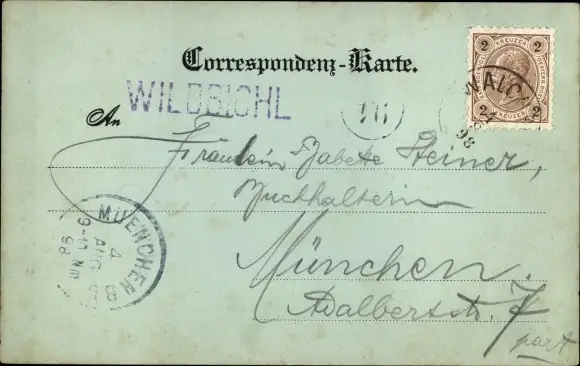 Correspondenz-Karte.
WILDBICHL
An
Fräulein Babette Steiner,
Buchhalterin
München.
Adalbertstr. 7
part
2 KREUZER 2
2 2
WALCH
98
MUENCHEN
4
AUG
98